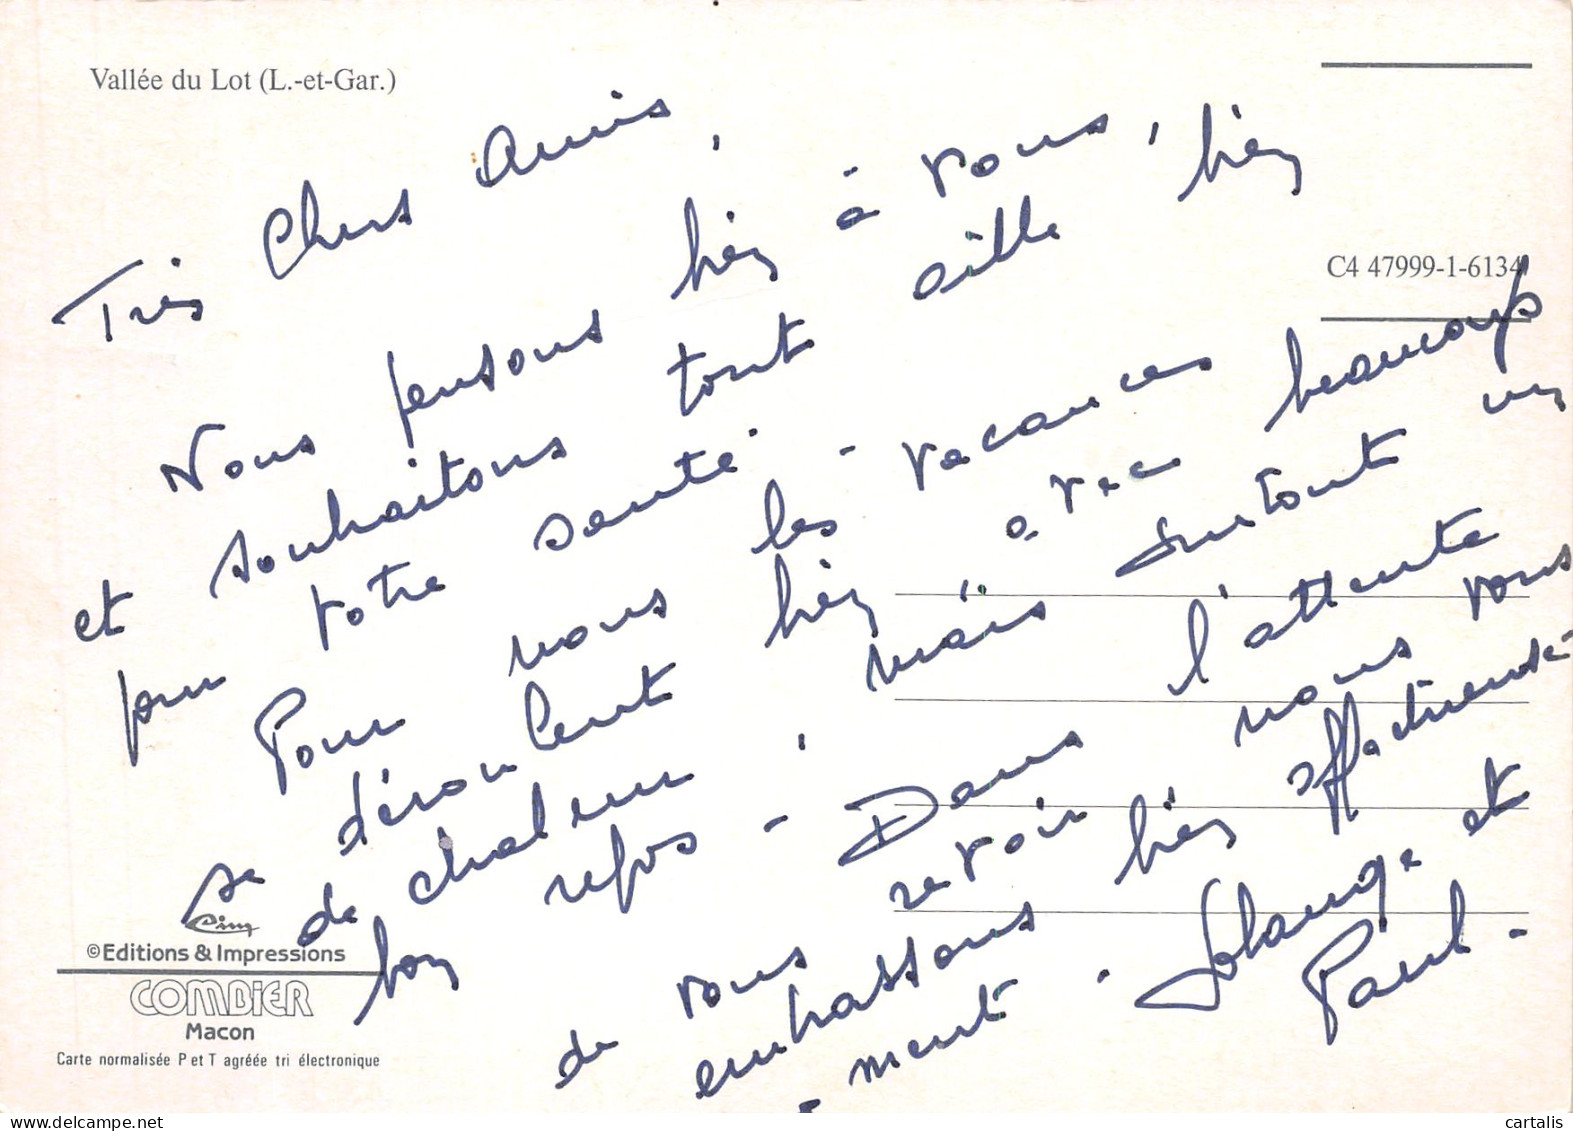 Vallée du Lot (L.-et-Gar.)
C4 47999-1-6134
Très Chers Amis,
Nous pensons bien à vous, bien
et souhaitons tout aille
pour votre santé.
Pour nous les vacances
se déroulent bien avec beaucoup
de chaleur, mais surtout un
bon repos - Dans l'attente
de vous revoir nous vous
embrassons bien affectueuse-
ment - Solange et
Paul -
Cim
©Editions & Impressions
COMBIER
Macon
Carte normalisée P et T agréée tri électronique
cartalis
www.delcampe.net